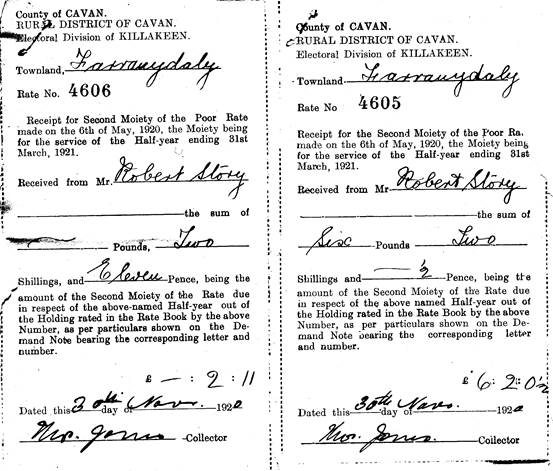 County of CAVAN.
RURAL DISTRICT OF CAVAN.
Electoral Division of KILLAKEEN.
Townland, Farranydaly
Rate No. 4606
Receipt for Second Moiety of the Poor Rate
made on the 6th of May, 1920, the Moiety being
for the service of the Half-year ending 31st
March, 1921.
Received from Mr. Robert Story
the sum of
Pounds, Two
Shillings, and Eleven Pence, being the
amount of the Second Moiety of the Rate due
in respect of the above-named Half-year out of
the Holding rated in the Rate Book by the above
Number, as per particulars shown on the De-
mand Note bearing the corresponding letter and
number.
£ — : 2 : 11
Dated this 30th day of Novr. 1920
Collector
County of CAVAN.
RURAL DISTRICT OF CAVAN.
Electoral Division of KILLAKEEN.
Townland. Farranydaly
Rate No 4605
Receipt for Second Moiety of the Poor Ra
made on the 6th of May, 1920, the Moiety being
for the service of the Half-year ending 31st
March, 1921.
Received from Mr Robert Story
the sum of
Six Pounds Two
Shillings and — ½ Pence, being the
amount of the Second Moiety of the Rate due
in respect of the above-named Half-year out of
the Holding rated in the Rate Book by the above
Number, as per particulars shown on the De-
mand Note bearing the corresponding letter
and number.
£ 6 : 2 : 0½
Dated this 30th day of Novr. 1920
Collector